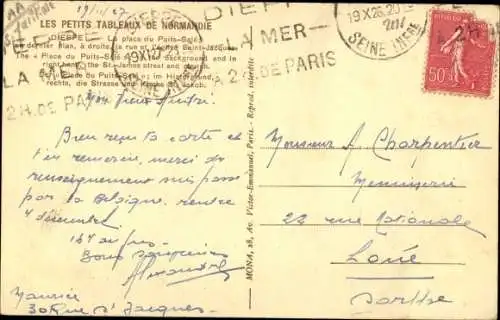 LES PETITS TABLEAUX DE NORMANDIE
DIEPPE — La place du Puits-Salé
au dernier plan, à droite, la rue et l'église Saint-Jacques.
The « Place du Puits-Salé » in the background and in
right hand the St-James street and church.
Place du Puits-Salé; im Hintergrund,
rechts, die Strasse und Kirche St Jakob.
DIEPPE
LA MER—
À 2H. DE PARIS
19 X
SEINE INFRE
LA MER
2H. DE PARIS
50c
Mon vieux
Bien reçu ta carte et
t'en remercie, merci du
renseignement mais passe
par la Belgique, rentre
4 décembre
Bons souvenirs
Alexandre
Maurice
30 Rue St Jacques
MONA, 28, Av. Victor-Emmanuel, Paris. - Reprod. interdite
Monsieur A Charpentier
Menuiserie
22 rue Nationale
Loué
Sarthe